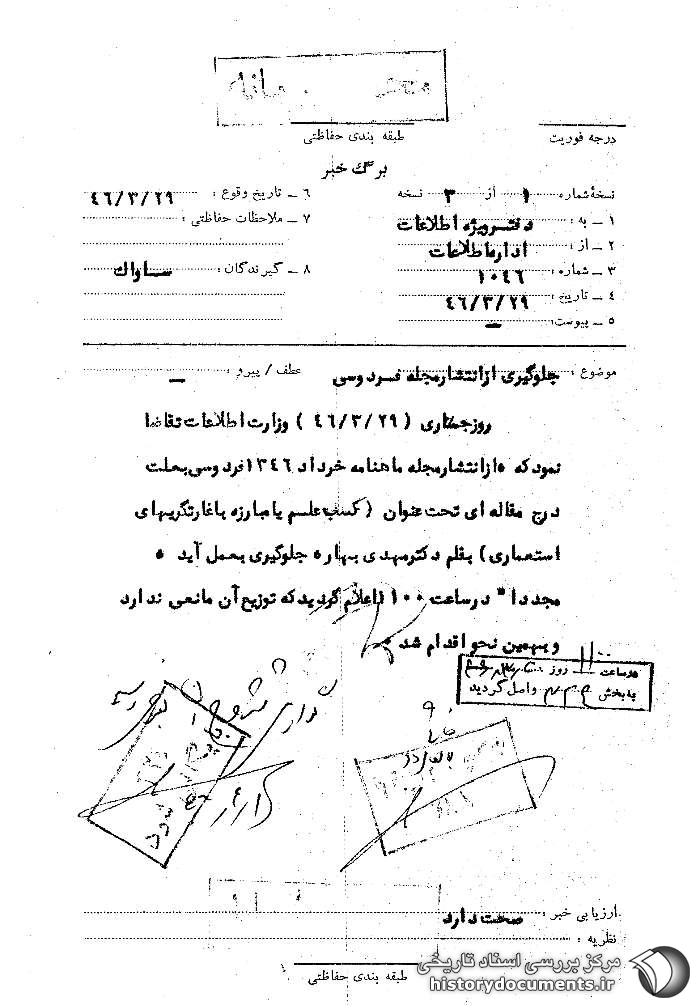 درجه فوریت
طبقه بندی حفاظتی
برگ خبر
نسخهٔ شماره ۱ از ۳ نسخه
۱ ــ به : دفتر ویژه اطلاعات
۲ ــ از : اداره اطلاعات
۳ ــ شماره : ۱۰۴۶
۴ ــ تاریخ : ۴۶/۳/۲۹
۵ ــ پیوست : ــ
۶ ــ تاریخ وقوع : ۴۶/۳/۲۹
۷ ــ ملاحظات حفاظتی :
۸ ــ گیرندگان : ساواک
موضوع : جلوگیری از انتشار مجله فردوسی عطف / پیرو : ــ
روز جاری ( ۴۶/۳/۲۹ ) وزارت اطلاعات تقاضا
نمود که از انتشار مجله ماهنامه خرداد ۱۳۴۶ فردوسی بعلت
درج مقاله ای تحت عنوان (کسب علم یا مبارزه با غارتگریهای
استعماری) بقلم دکتر مهدی بهار جلوگیری بعمل آید ۰
مجددا" در ساعت ۱۰۰۰ اعلام گردید که توزیع آن مانعی ندارد
و بهمین نحو اقدام شد
در ساعت ۱۱۰۰ روز
به بخش واصل گردید
ارزیابی خبر : صحت دارد
نظریه :
طبقه بندی حفاظتی
مرکز بررسی اسناد تاریخی
historydocuments.ir